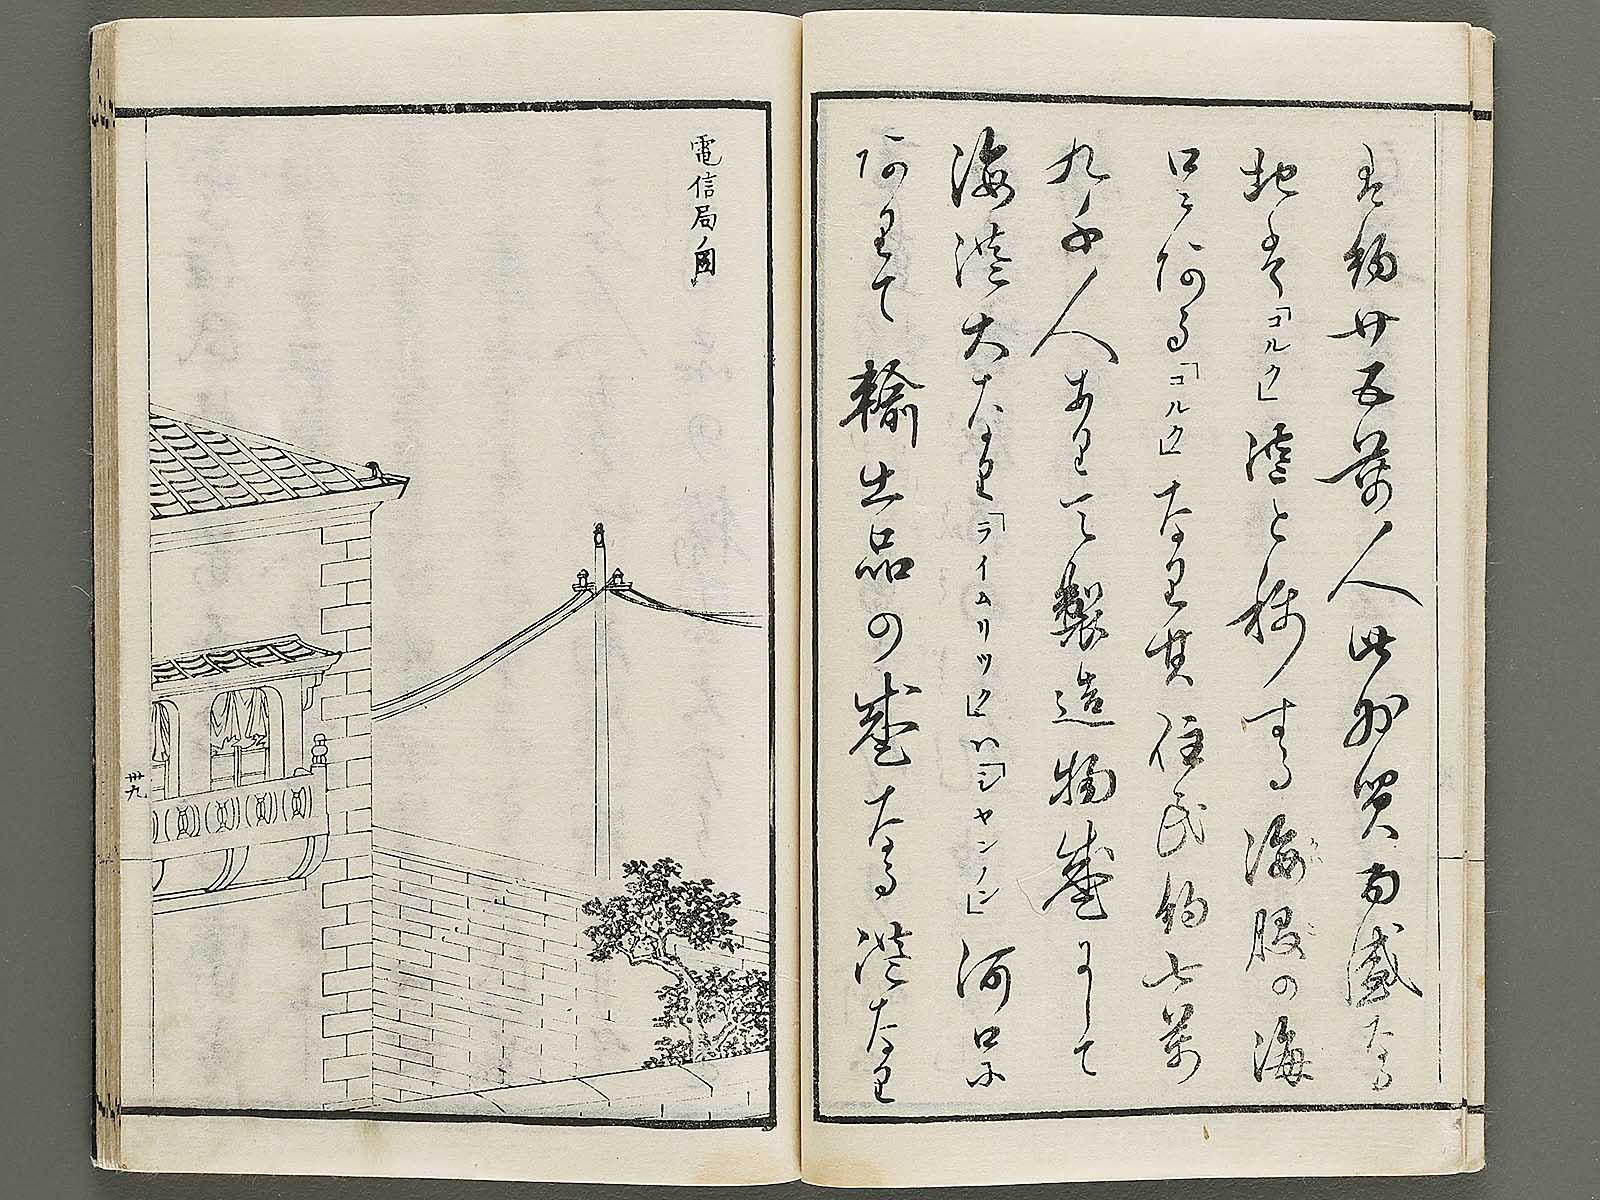 は約廿五萬人此州貿商盛なる
地は「コルク」港と称する海股の海
口に阿る「コルク」なり其住民約七萬
九千人ありて製造物盛にして
海港大なり「ライムリック」ハ「シャンノン」河口に
阿りて輸出品の盛なる港なり
電信局ノ図
卅九